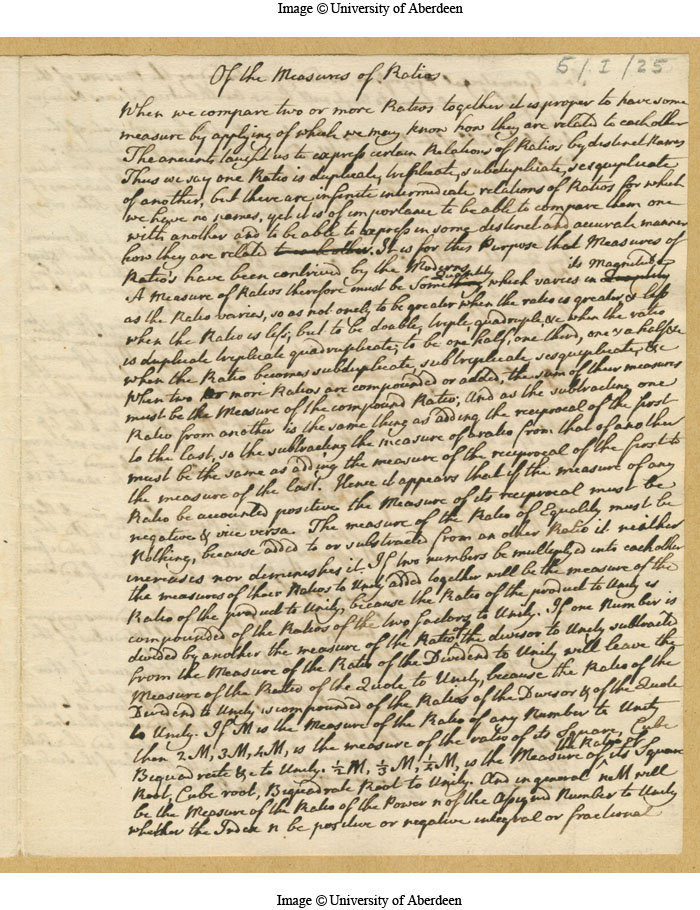 Image © University of Aberdeen
5/I/25
Of the Measures of Ratios
When we compare two or more Ratios together it is proper to have some
measure by applying of which we may know how they are related to each other
The ancients taught us to express certain Relations of Ratios by distinct Names
Thus we say one Ratio is duplicate, triplicate, subduplicate, sesquuplicate
of another, but there are infinite intermediate relations of Ratios for which
we have no names, yet it is of importance to be able to compare them one
with another and to be able to express in some distinct and accurate manner
how they are related to each other. It is for this Purpose that Measures of
Ratio's have been contrived by the Moderns
Quantity its Magnitude
A Measure of Ratios therefore must be something which varies in
as the Ratio varies, so as not onely to be greater when the ratio is greater, & less
when the Ratio is less; but to be double, triple, quadruple, &c when the ratio
is duplicate triplicate quadruplicate; to be one half, one third, one & a half &c
when the Ratio becomes subduplicate, subtriplicate sesquuplicate, &c
When two or more Ratios are compounded or added, the sum of their measures
must be the Measure of the compound Ratio; And as the subtracting one
Ratio from another is the same thing as adding the reciprocal of the first
to the last, so the subtracting the measure of a ratio from that of another
must be the same as adding the measure of the reciprocal of the first to
the measure of the last. Hence it appears that if the measure of any
Ratio be accounted positive the Measure of its reciprocal must be
negative & vice versa. The measure of the Ratio of Equality must be
Nothing, because added to or substracted from an other Ratio it neither
increases nor deminishes it. If two numbers be multiplyed into each other
the measures of their Ratios to Unity added together will be the measure of the
Ratio of the product to Unity, because the Ratio of the product to Unity is
compounded of the Ratios of the two factors to Unity. If one Number is
divided by another the measure of the Ratio of the divisor to Unity subtracted
from the Measure of the Ratio of the Dividend to Unity will leave the
Measure of the Ratio of the Quote to Unity, because the Ratio of the
Dividend to Unity is compounded of the Ratios of the Divisor & of the Quote
to Unity. If M is the Measure of the Ratio of any Number to Unity
then 2M, 3M, 4M, is the measure of the ratio of its Square, Cube
Biquadrate &c to Unity. ½M, ⅓M, ¼M, is the Measure of the Ratio of its Square
Root, Cube root, Biquadrate Root to Unity. And in general nM will
be the Measure of the Ratio of the Power n of the assigned Number to Unity
whether the Index n be positive or negative integral or fractional
Image © University of Aberdeen